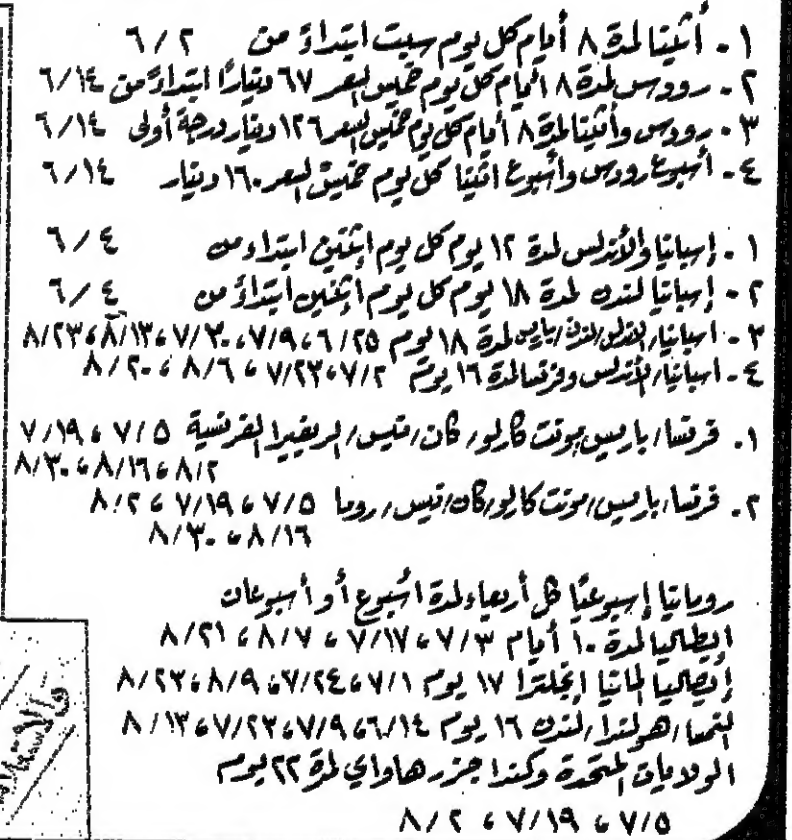 ١ - أثينا لمدة ٨ أيام كل يوم سبت ابتداءً من ٦/٢
٢ - رودس لمدة ٨ أيام كل يوم خميس السعر ٦٧ ديناراً ابتداءً من ٦/١٤
٣ - رودس وأثينا لمدة ٨ أيام كل يوم خميس السعر ١٢٦ دينار درجة أولى ٦/١٤
٤ - أسبوع رودس وأسبوع اثينا كل يوم خميس السعر ١٦٠ دينار ٦/١٤
١ - إسبانيا والأندلس لمدة ١٢ يوم كل يوم إثنين ابتداء من ٦/٤
٢ - إسبانيا لندن لمدة ١٨ يوم كل يوم اثنين ابتداءً من ٦/٤
٣ - اسبانيا/الأندلس/لندن/باريس لمدة ١٨ يوم ٦/٢٥، ٧/٩، ٧/٣٠، ٨/١٣، ٨/٢٣
٤ - اسبانيا/الأندلس وفرنسا لمدة ١٦ يوم ٧/٢، ٧/٢٣، ٨/٦، ٨/٢٠
١ - فرنسا/باريس/مونت كارلو/كان/نيس/الريفيرا الفرنسية ٧/٥، ٧/١٩
٨/٢، ٨/١٦، ٨/٣٠
٢ - فرنسا/باريس/مونت كالو/كان/نيس/روما ٧/٥، ٧/١٩، ٨/٢
٨/١٦، ٨/٣٠
رومانيا إسبوعيًا كل أربعاء لمدة اسبوع أو أسبوعان
إيطاليا لمدة ١٠ أيام ٧/٣، ٧/١٧، ٨/٧، ٨/٢١
إيطاليا المانيا إنجلترا ١٧ يوم ٧/١، ٧/٢٤، ٨/٩، ٨/٢٣
النمسا/هولندا/لندن ١٦ يوم ٦/١٤، ٧/٩، ٧/٢٣، ٨/١٣
الولايات المتحدة وكندا جزر هاواي لمدة ٢٢ يوم
٧/٥، ٧/١٩، ٨/٢